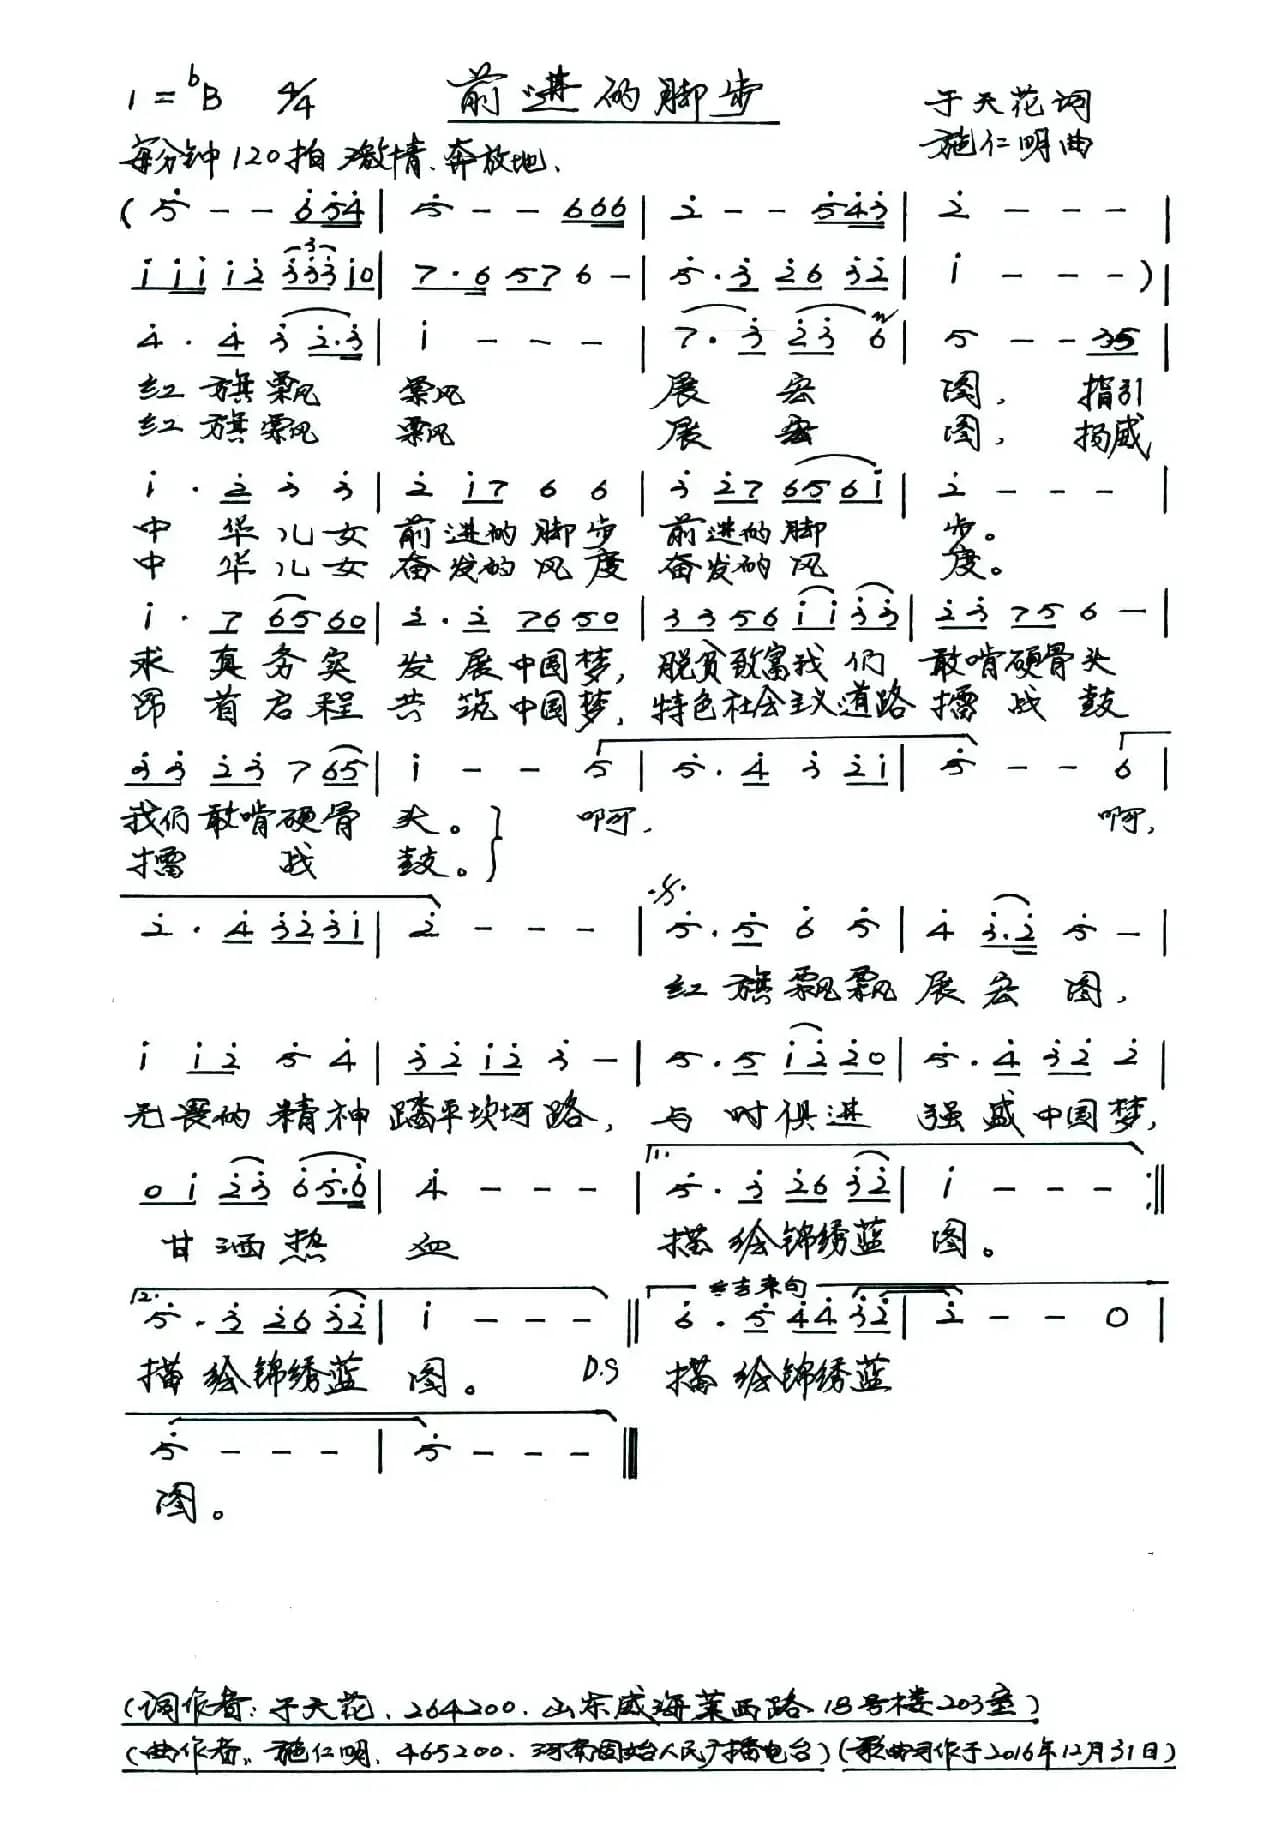 1=♭B 4/4 前进的脚步 于天花词
每分钟120拍 激情、奔放地、 施仁明曲
(5 - - 654 | 5 - - 666 | 2 - - 543 | 2 - - - |
111 12 333 10 | 7·6 57 6 - | 5·3 26 32 | 1 - - -) |
4·4 3 2·3 | 1 - - - | 7·3 23 6 | 5 - - 35 |
红旗飘 飘 展宏 图, 指引
红旗飘 飘 展宏 图, 扬威
1·2 3 3 | 2 17 6 6 | 3 27 65 61 | 2 - - - |
中华儿女 前进的脚步 前进的脚 步。
中华儿女 奋发的风度 奋发的风 度。
1·7 65 60 | 2·2 76 50 | 33 56 11 33 | 23 75 6 - |
求真务实 发展中国梦, 脱贫致富我们 敢啃硬骨头
昂首启程 共筑中国梦, 特色社会主义道路 擂战鼓
33 23 7 65 | 1 - - 5 | 5·4 3 21 | 5 - - 6 |
我们敢啃硬骨 头。 啊, 啊,
擂战 鼓。
2·4 32 31 | 2 - - - | 5·5 6 5 | 4 3·2 5 - |
红旗飘飘 展宏图,
1 12 5 4 | 32 12 3 - | 5·5 12 20 | 5·4 32 2 |
无畏的精神 踏平坎坷路, 与时俱进 强盛中国梦,
01 23 65·6 | 4 - - - | 1. 5·3 26 32 | 1 - - - :||
甘洒热 血 描绘锦绣蓝 图。
2. 5·3 26 32 | 1 - - - || 结束句 6·5 44 32 | 2 - - 0 |
描绘锦绣蓝 图。 D.S 描绘锦绣蓝
5 - - - | 5 - - - ||
图。
(词作者:于天花、264200.山东威海莱西路18号楼203室)
(曲作者:施仁明、465200.河南固始人民广播电台)(歌曲习作于2016年12月31日)